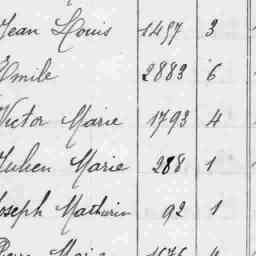 Jean Louis 1457 3
Emile 2883 6
Victor Marie 1793 4
Julien Marie 288 1
Joseph Mathurin 92 1